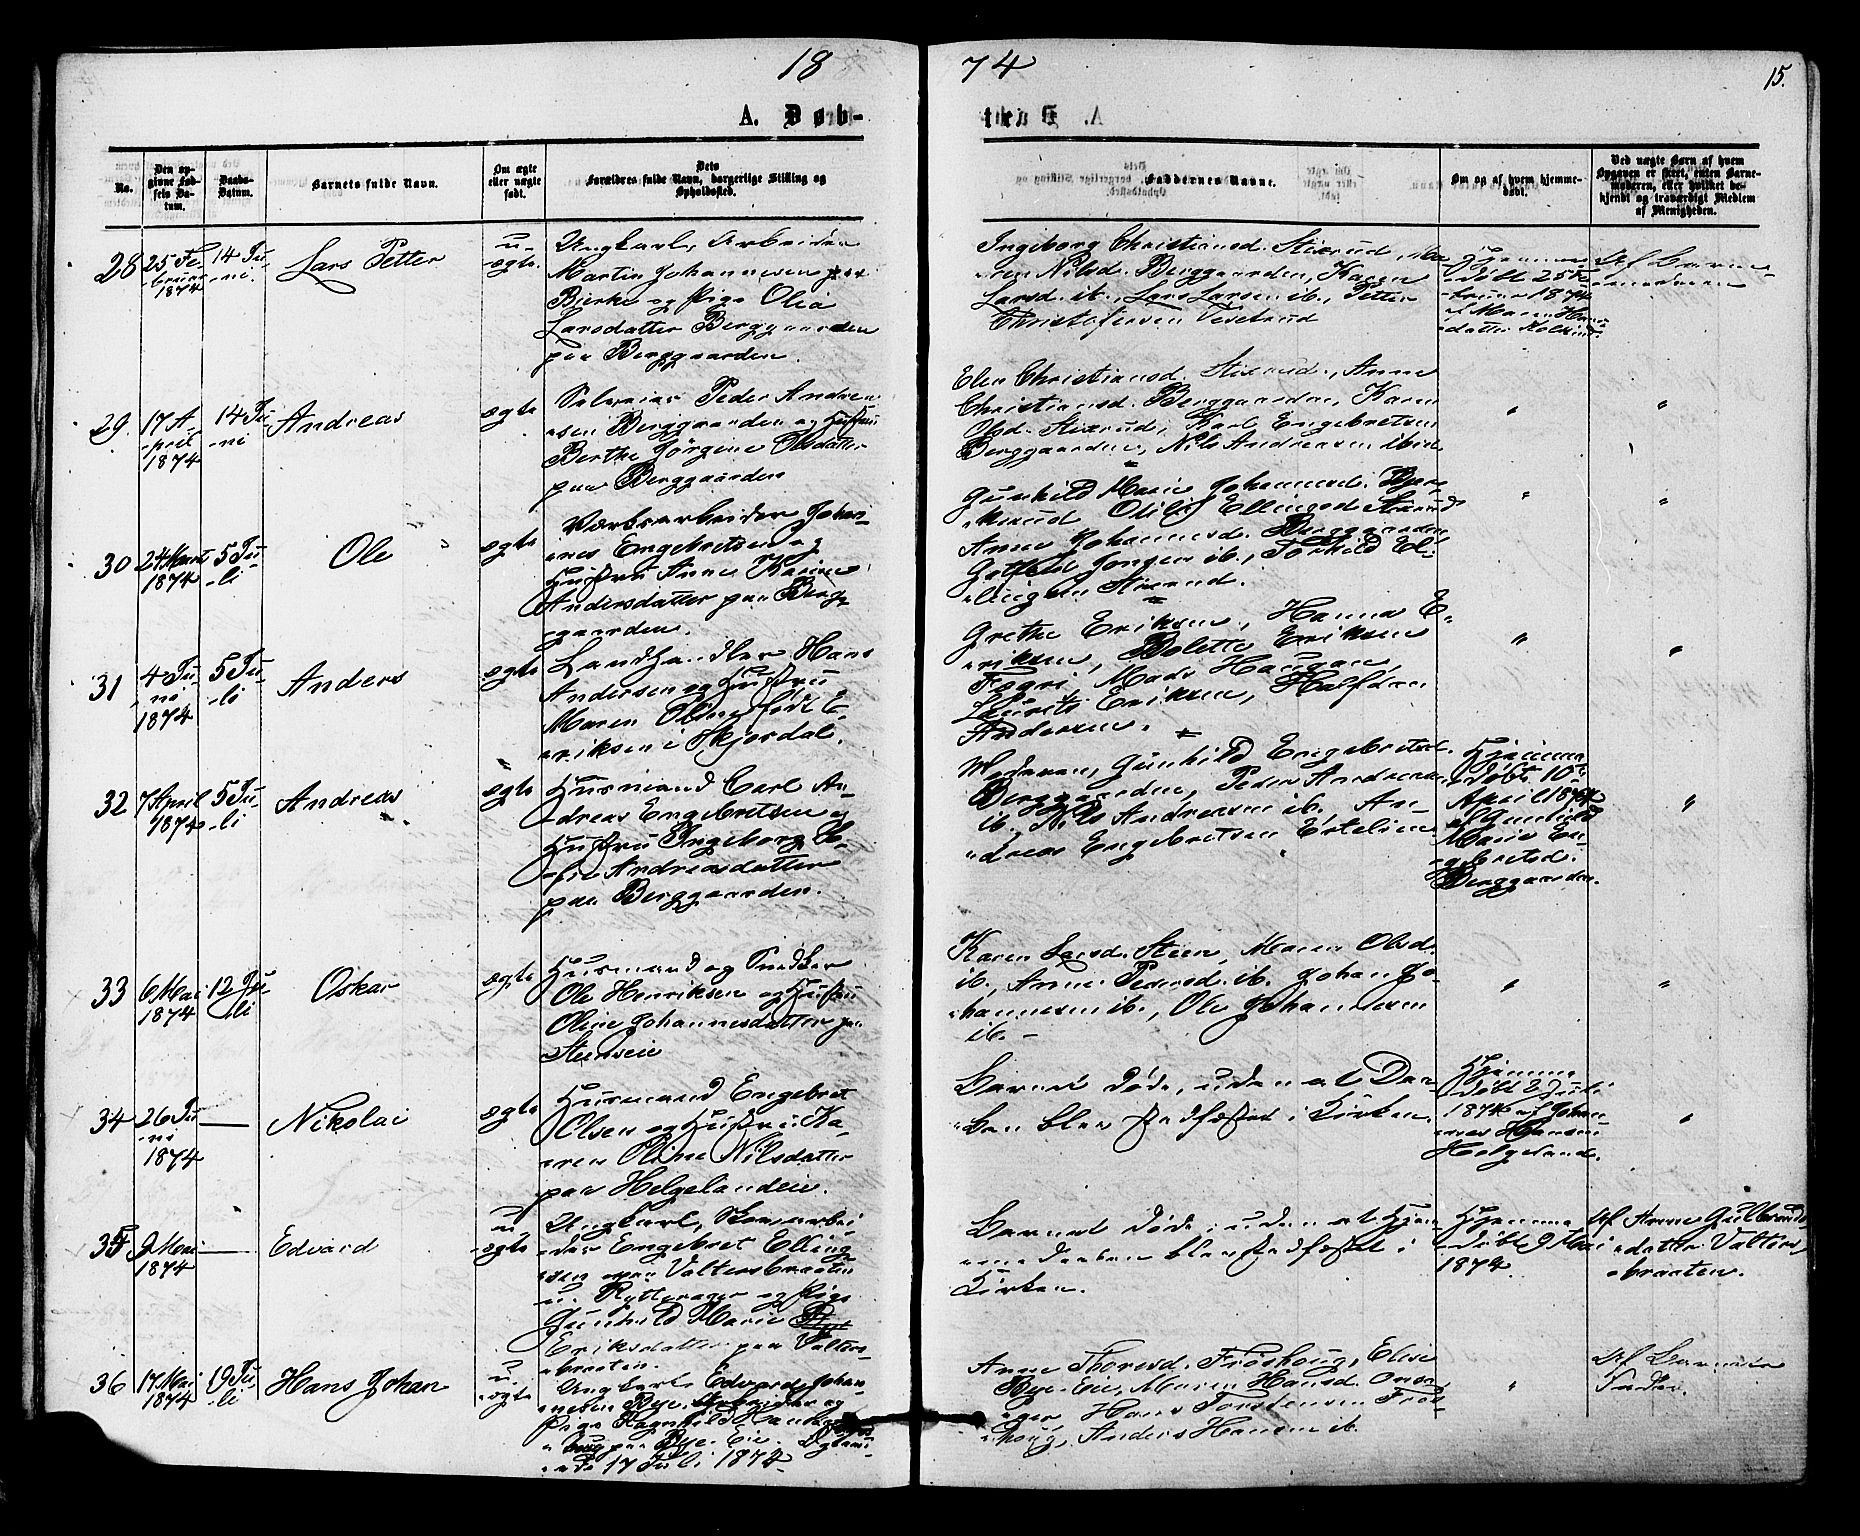 18 74
15.
A. Døb-
te.
No.
Den op-
givne Fød-
sels Da-
tum.
Daabs-
Datum.
Barnets fulde Navn.
Om ægte
eller uægte
født.
Dets
Forældres fulde Navn, borgerlige Stilling og
Opholdssted.
Faddernes Navne.
Om og af hvem hjemme-
døbt.
Ved uægte Børn af hvem
Opgaven er skeet, enten Barne-
moderen, eller hvilket be-
kjendt og troværdigt Medlem
af Menigheden.
28
25 Fe-
bruar
1874
14 Ju-
ni.
Lars Petter
u-
ægte
Ungkarl, Arbeider
Martin Johannesen
Bjerke og Pige Olea
Larsdatter Berggaarden
paa Berggaarden.
Ingeborg Christiansd. Stixrud, Ma-
ren Nilsd. Berggaarden, Karen
Larsd. ib., Lars Larsen ib., Petter
Christofersen Vesetrud
Hjemme-
døbt 25 Fe-
bruar 1874
af Maren Hans-
datter
Af Barne-
moderen
29.
17 A-
pril
1874
14 Ju-
ni
Andreas
ægte
Selveier Peder Andrea-
sen Berggaarden og Hustru
Berthe Jørgine Olsdatter
paa Berggaarden
Elen Christiansd. Stixrud, Anne
Christiansd. Berggaarden, Karen
Olsd. Stixrud, Karl Engebretsen
Berggaarden, Nils Andreasen ibid.
"
"
30
24 Marts
1874
5 Ju-
li
Ole
ægte
Værksarbeider Johan-
nes Engebretsen og
Hustru Anne Karine
Andersdatter paa Berg-
gaarden.
Gunhild Marie Johannesd.
Ellingsd. Strand
Anne Johannesd. Berggaarden
ib., Torkild El-
lingsen Strand.
"
"
31
4 Ju-
ni
1874
5 Ju-
li
Anders
ægte
Landhandler Hans
Andersen og Hustru
Maren Oline født E-
riksen i Hjordal.
Grethe Eriksen, Hanna E-
riksen, Bolette Eriksen
Mads Haugan,
Laurits Eriksen, Halfdan
Andersen.
"
"
32
7 April
1874
5 Ju-
li
Andreas
ægte
Husmand Carl An-
dreas Engebretsen og
Hustru Ingeborg So-
fie Andreasdatter
paa Berggaarden.
Moderen, Gunhild Engebretsd.
Berggaarden, Peder Andreasen
ib., Nils Andreasen ib., An-
dreas Engebretsen Ertelien
Hjemme-
døbt 10de
April 1874
af Gunhild
Marie En-
gebretsd.
Berggaarden.
"
33
6 Mai
1874
12 Ju-
li
Oskar
ægte
Husmand og Snedker
Ole Henriksen og Hustru
Oline Johannesdatter paa
Steenseie
Karen Larsd. Steen, Maren Olsd.
ib., Anne Pedersd. ib. Johan Jo-
hannesen ib., Ole Johannesen
ib.
"
"
34
26 Ju-
ni
1874
Nikolai
ægte
Husmand Engebret
Olsen og Hustru Ka-
ren Oline Nilsdatter
paa Helgelandeie.
Barnet døde, uden at Daa-
ben blev stadfæstet i Kirken
Hjemme-
døbt 2 Juli
1874 af Johan-
nes Hansen
Helgeland.
"
35
9 Mai
1874
Edvard
u-
ægte
Ungkarl, Skovarbei-
der Engebret Elling-
sen paa Valtersbraaten
u. Rytterager og Pige
Gunhild Marie
Eriksdatter paa Valters-
braaten.
Barnet døde, uden at Hjem-
me Daaben blev stadfæstet i
Kirken.
Hjemme-
døbt 9 Mai
1874.
Af Anne Gulbrands-
datter Valters-
braaten.
36
17 Mai
1874
19 Ju-
li
Hans Johan
u-
ægte
Ungkarl Edvard Johan-
nesen Bye, Arbeider og
Pige Ragnhild
paa Bye Eie.
17 Juli 1874.
Anne Thoresd. Frøshoug, Elise
Bye-Eie, Maren Hansd. Ons-
ager, Hans Torstensen Frøs-
houg, Anders Hansen ib.
"
Af Barnets
Fader.